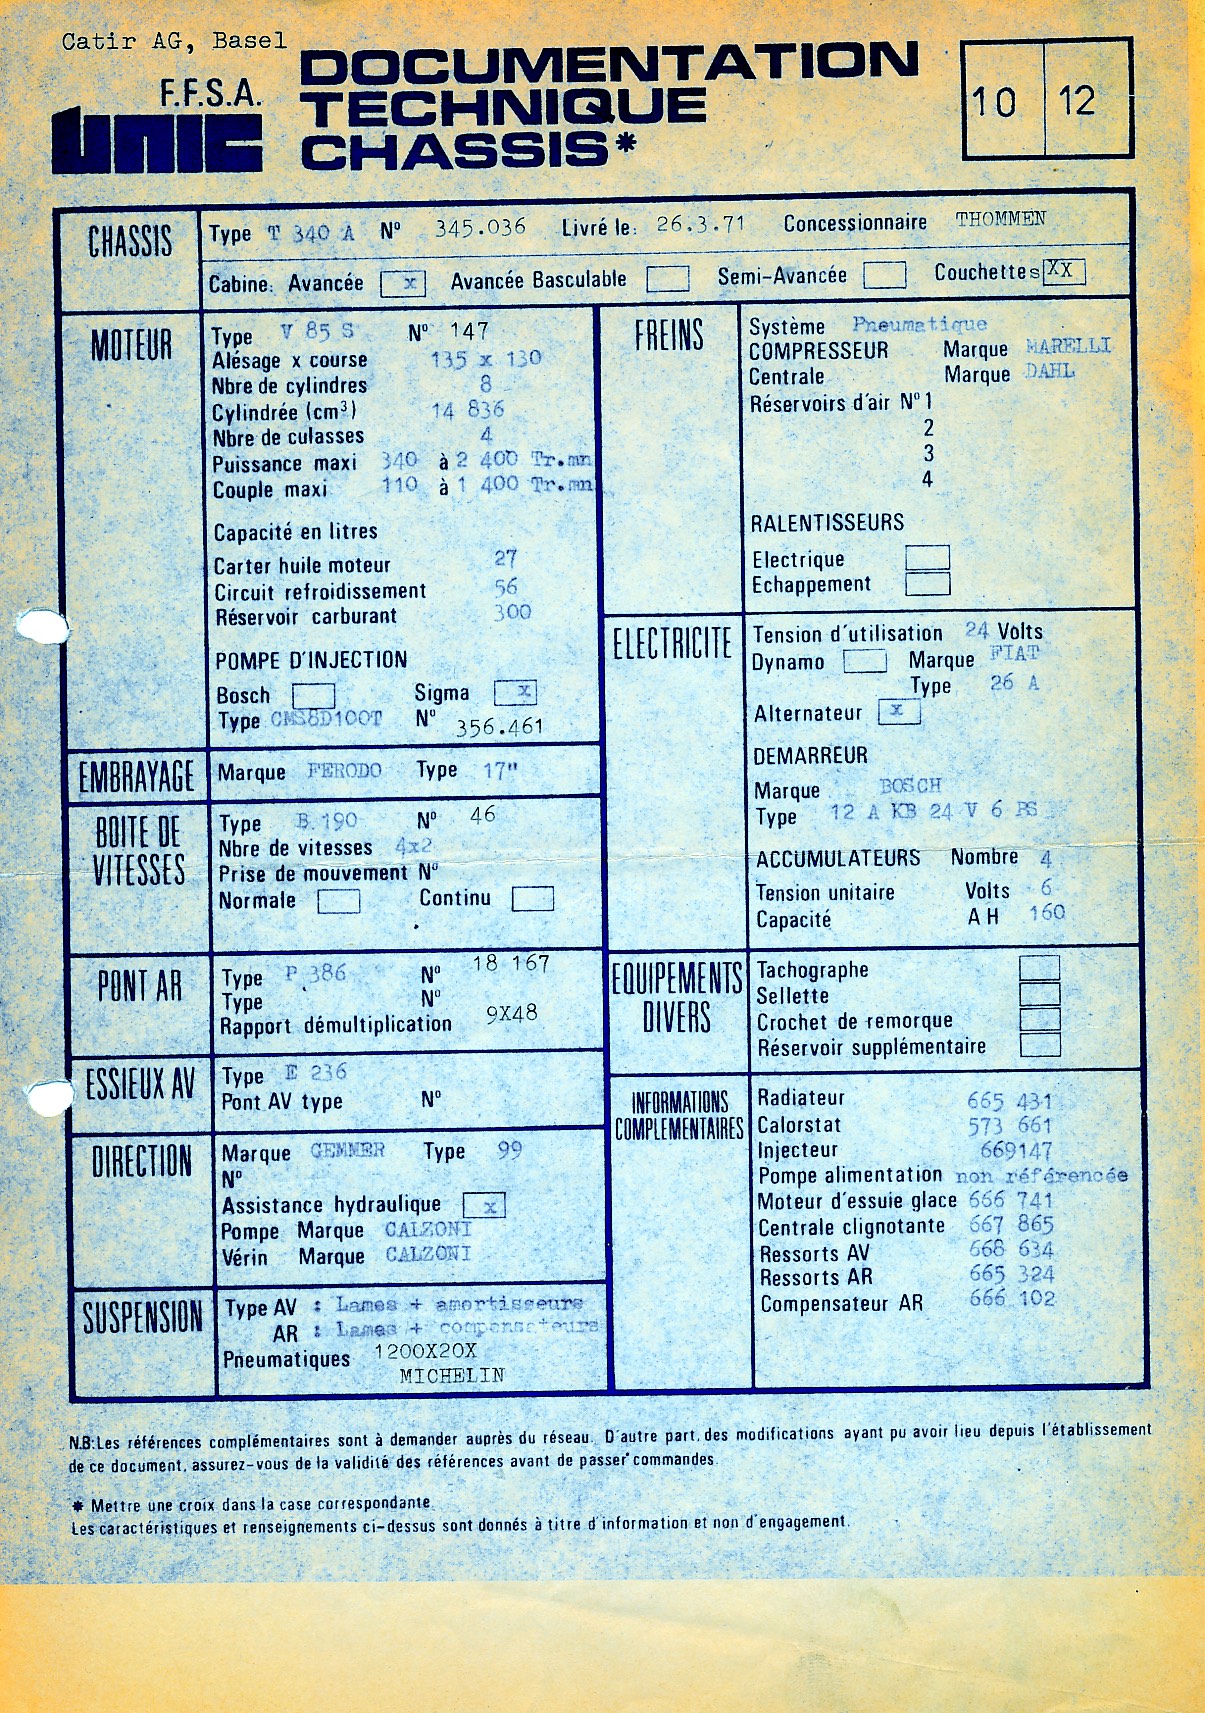 Catir AG, Basel
F.F.S.A.
unic
DOCUMENTATION
TECHNIQUE
CHASSIS*
10 12
CHASSIS
Type T 340 A N° 345.036 Livré le: 26.3.71 Concessionnaire THOMMEN
Cabine: Avancée x Avancée Basculable Semi-Avancée Couchettes XX
MOTEUR
Type V 85 S N° 147
Alésage x course 135 x 130
Nbre de cylindres 8
Cylindrée (cm³) 14 836
Nbre de culasses 4
Puissance maxi 340 à 2 400 Tr.mn
Couple maxi 110 à 1 400 Tr.mn
Capacité en litres
Carter huile moteur 27
Circuit refroidissement 56
Réservoir carburant 300
POMPE D'INJECTION
Bosch Sigma x
Type CMS8D100T N° 356.461
EMBRAYAGE
Marque FERODO Type 17"
BOITE DE
VITESSES
Type B.190 N° 46
Nbre de vitesses 4x2
Prise de mouvement N°
Normale Continu
PONT AR
Type P 386 N° 18 167
Type N°
Rapport démultiplication 9X48
ESSIEUX AV
Type E 236
Pont AV type N°
DIRECTION
Marque GEMMER Type 99
N°
Assistance hydraulique x
Pompe Marque CALZONI
Vérin Marque CALZONI
SUSPENSION
Type AV : Lames + amortisseurs
AR : Lames + compensateurs
Pneumatiques 1200X20X
MICHELIN
FREINS
Système Pneumatique
COMPRESSEUR Marque MARELLI
Centrale Marque DAHL
Réservoirs d'air N° 1
2
3
4
RALENTISSEURS
Electrique
Echappement
ELECTRICITE
Tension d'utilisation 24 Volts
Dynamo Marque FIAT
Type 26 A
Alternateur x
DEMARREUR
Marque BOSCH
Type 12 A KB 24 V 6 PS
ACCUMULATEURS Nombre 4
Tension unitaire Volts 6
Capacité A H 160
EQUIPEMENTS
DIVERS
Tachographe
Sellette
Crochet de remorque
Réservoir supplémentaire
INFORMATIONS
COMPLEMENTAIRES
Radiateur 665 431
Calorstat 573 661
Injecteur 669147
Pompe alimentation non référencée
Moteur d'essuie glace 666 741
Centrale clignotante 667 865
Ressorts AV 668 634
Ressorts AR 665 324
Compensateur AR 666 102
N.B: Les références complémentaires sont à demander auprès du réseau. D'autre part, des modifications ayant pu avoir lieu depuis l'établissement
de ce document, assurez-vous de la validité des références avant de passer commandes.
* Mettre une croix dans la case correspondante.
Les caractéristiques et renseignements ci-dessus sont donnés à titre d'information et non d'engagement.